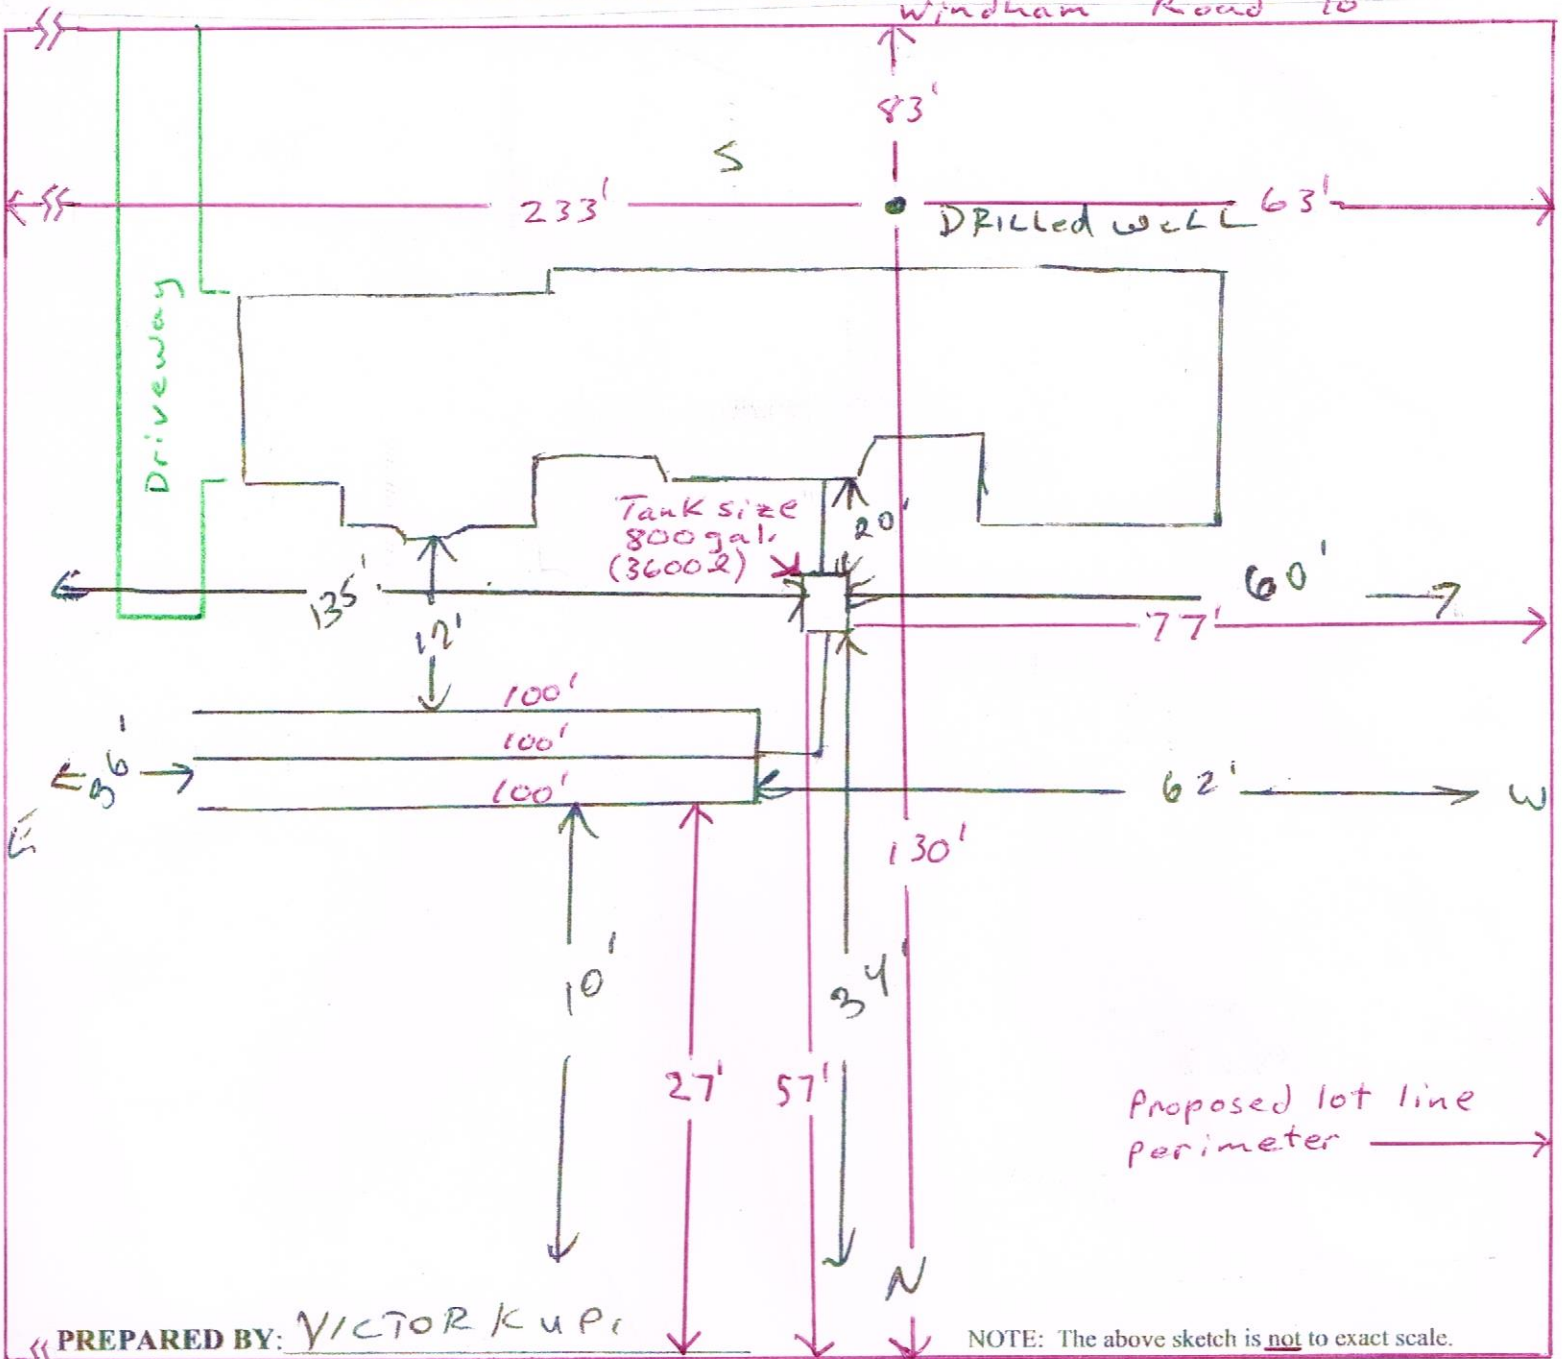 Windham Road 10
83'
S
233'
63'
DRILLed weLL
Driveway
Tank size
800 gal.
(3600ℓ)
20'
135'
60'
12'
77'
100'
100'
100'
36'
62'
W
E
130'
10'
34'
27'
57'
Proposed lot line
perimeter
N
PREPARED BY: VICTOR KUPI
NOTE: The above sketch is not to exact scale.